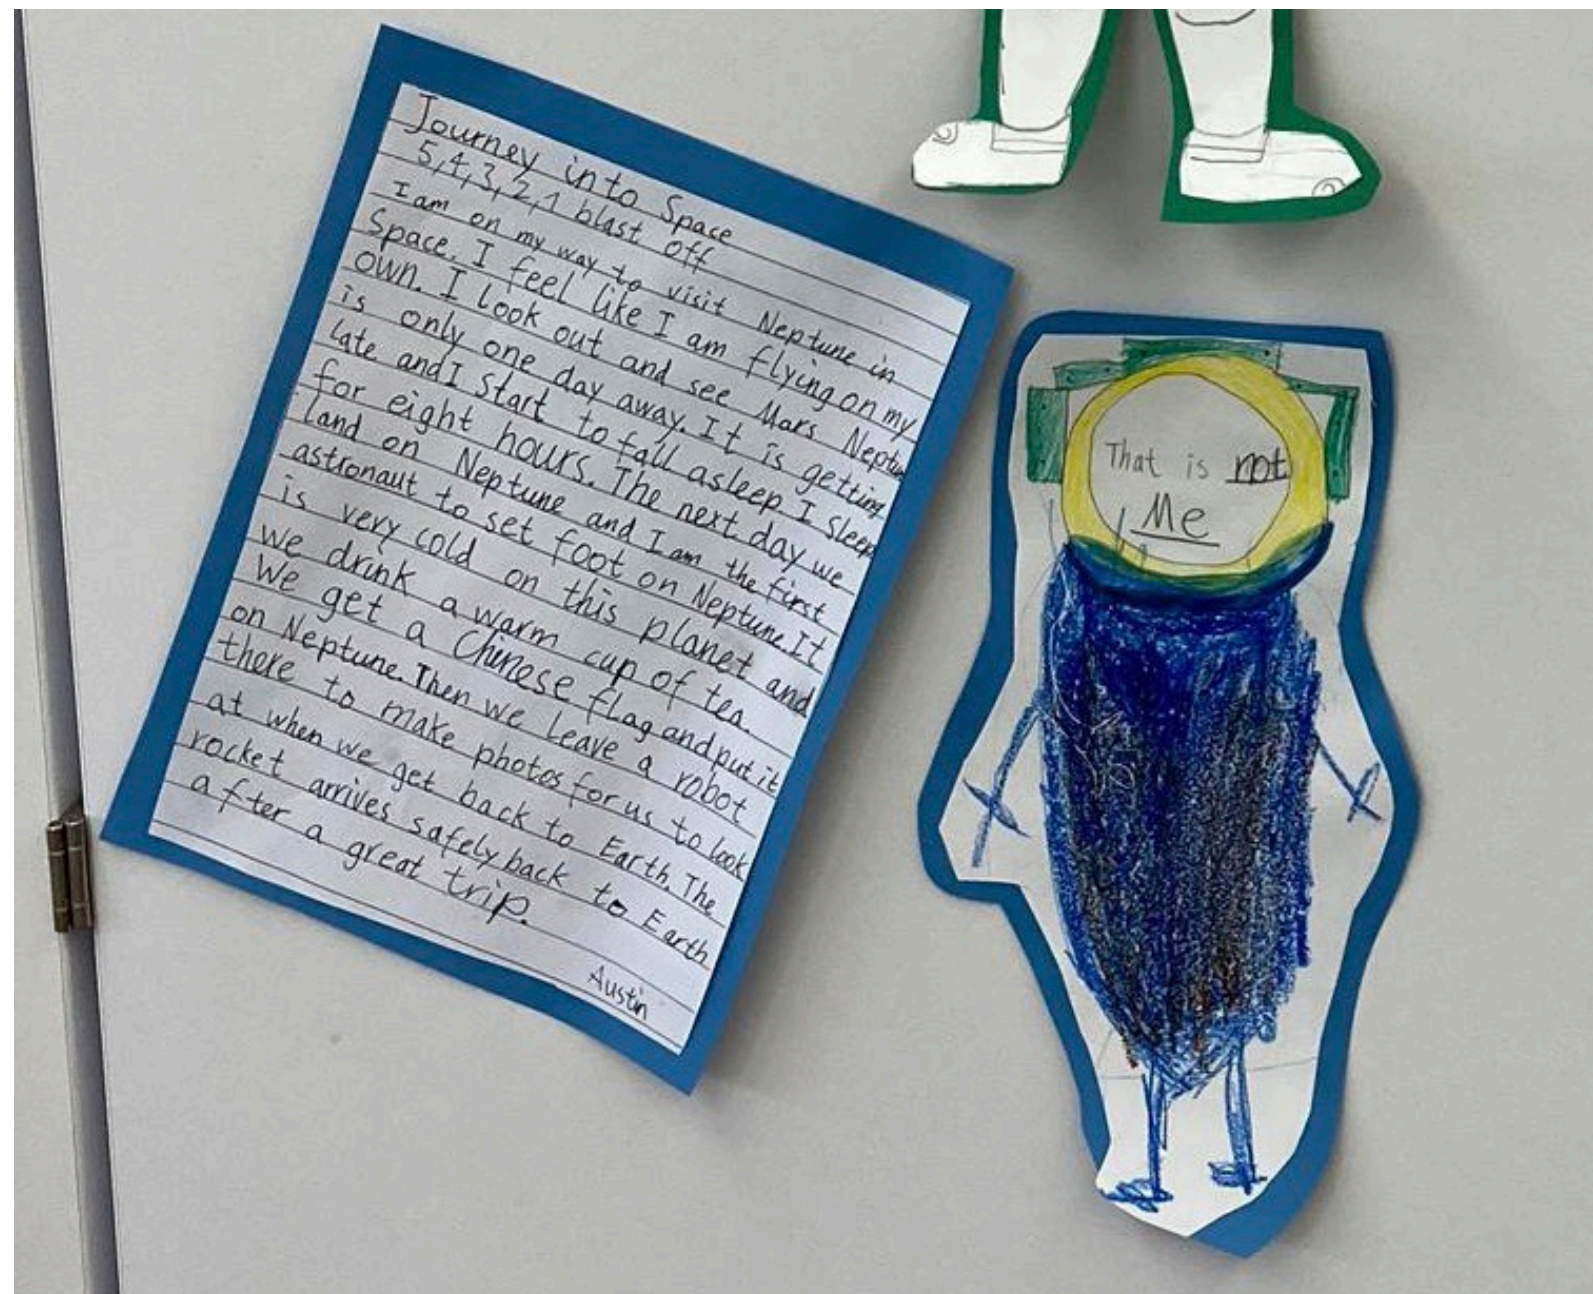 Journey into Space
5,4,3,2,1 blast off
I am on my way to visit Neptune in
Space. I feel like I am flying on my
own. I look out and see Mars Neptune
is only one day away. It is getting
late and I start to fall asleep I sleep
for eight hours. The next day we
land on Neptune and I am the first
astronaut to set foot on Neptune. It
is very cold on this planet and
we drink a warm cup of tea.
We get a Chinese flag and put it
on Neptune. Then we leave a robot
there to make photos for us to look
at when we get back to Earth. The
rocket arrives safely back to Earth
after a great trip.
Austin
That is not
Me